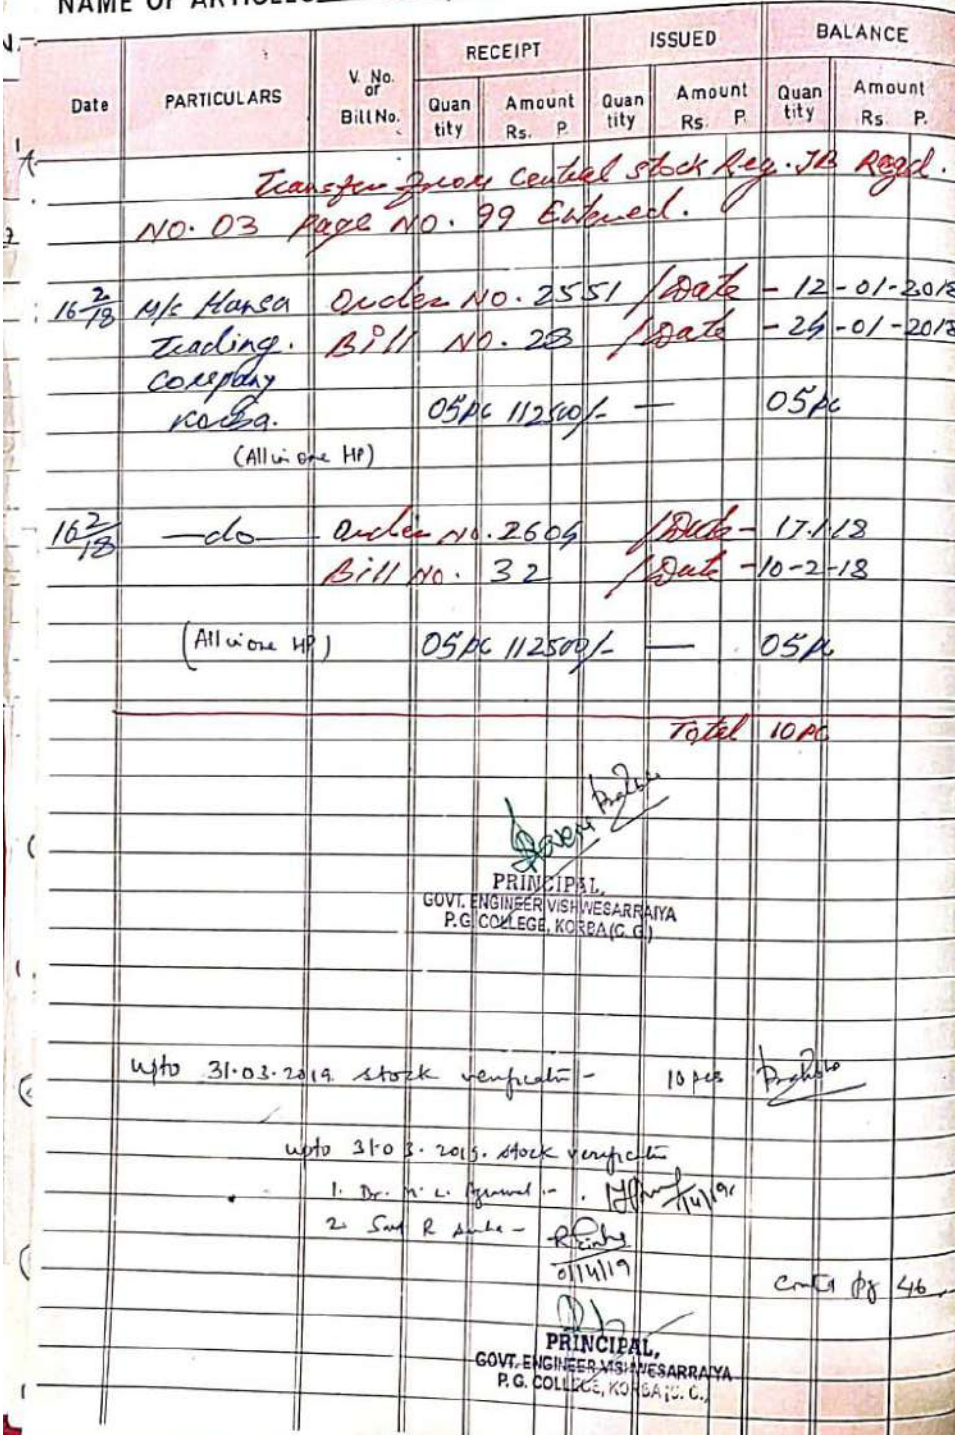 NAME OF ARTICLES
Date PARTICULARS V. No. or Bill No. RECEIPT ISSUED BALANCE
Quantity Amount Rs. P. Quantity Amount Rs. P. Quantity Amount Rs. P.
Transfer from Central Stock Reg. JB Regd.
NO. 03 Page NO. 99 Entered.
16 2/18 M/s Hansa Order NO. 2551 /Date - 12-01-2018
Trading. Bill NO. 28 /Date - 24-01-2018
Company
Korba. 05pc 112500/- — 05pc
(All in one HP)
16 2/18 —do— Order NO. 2604 /Date - 17.1.18
Bill NO. 32 /Date -10-2-18
(All in one HP) 05pc 112500/- — 05pc
Total 10 pc
PRINCIPAL,
GOVT. ENGINEER VISHWESARRAIYA
P.G. COLLEGE, KORBA (C.G.)
upto 31.03.2019 stock verification - 10 pcs
upto 31.03.2019. stock verification
1. Dr. M. L. Agrawal - 1/4/19
2. Smt R Sinha - RSinha
01/4/19
Contd pg 46
PRINCIPAL,
GOVT. ENGINEER VISHWESARRAIYA
P. G. COLLEGE, KORBA (C. G.)